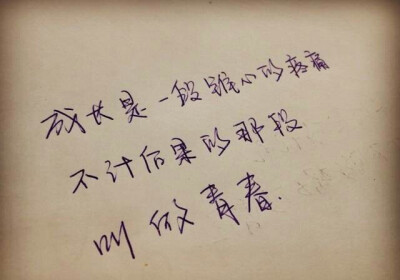 成长是一段锥心的疼痛
不计后果的那段
叫做青春.